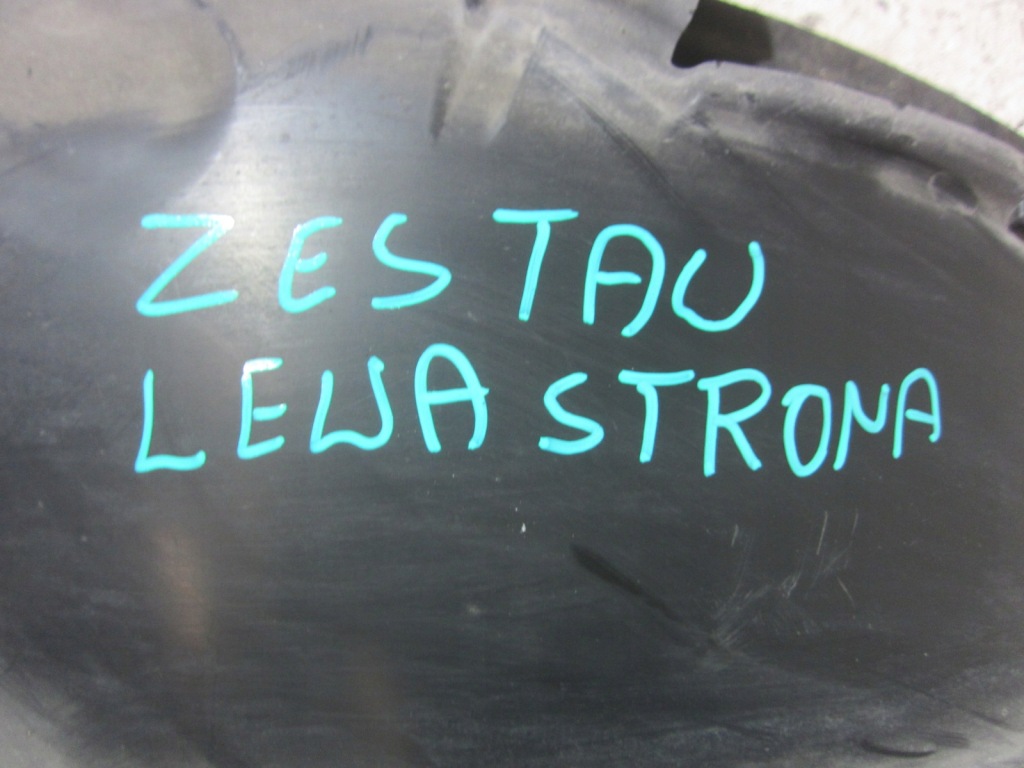 ZESTAU
LEWA STRONA